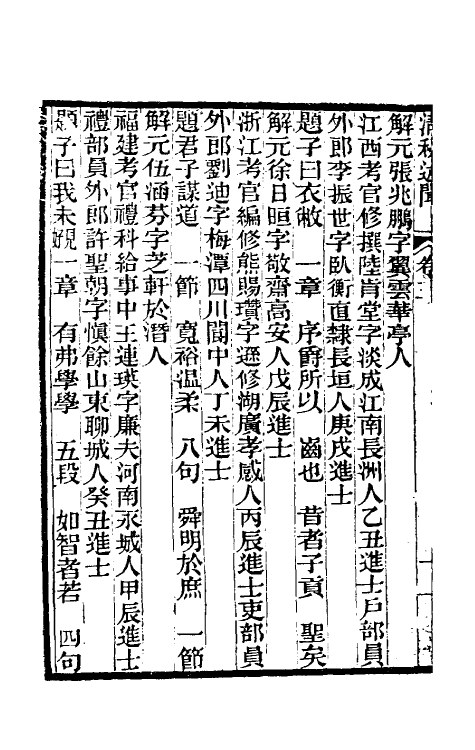 清秘述聞 卷三
解元張兆鵬字翼雲華亭人
江西考官修撰陸肯堂字淡成江南長洲人乙丑進士戶部員
外郎李振世字臥衡直隸長垣人庚戌進士
題子曰衣敝 一章 序爵所以 齒也 昔者子貢 聖矣
解元徐日暄字敬齋高安人戊辰進士
浙江考官編修熊賜瓚字遜修湖廣孝感人丙辰進士吏部員
外郎劉迪字梅潭四川閬中人丁未進士
題君子謀道 一節 寬裕温柔 八句 舜明於庶 一節
解元伍涵芬字芝軒於潛人
福建考官禮科給事中王連瑛字廉夫河南永城人甲辰進士
禮部員外郎許聖朝字慎餘山東聊城人癸丑進士
題子曰我未見 一章 有弗學學 五段 如智者若 四句